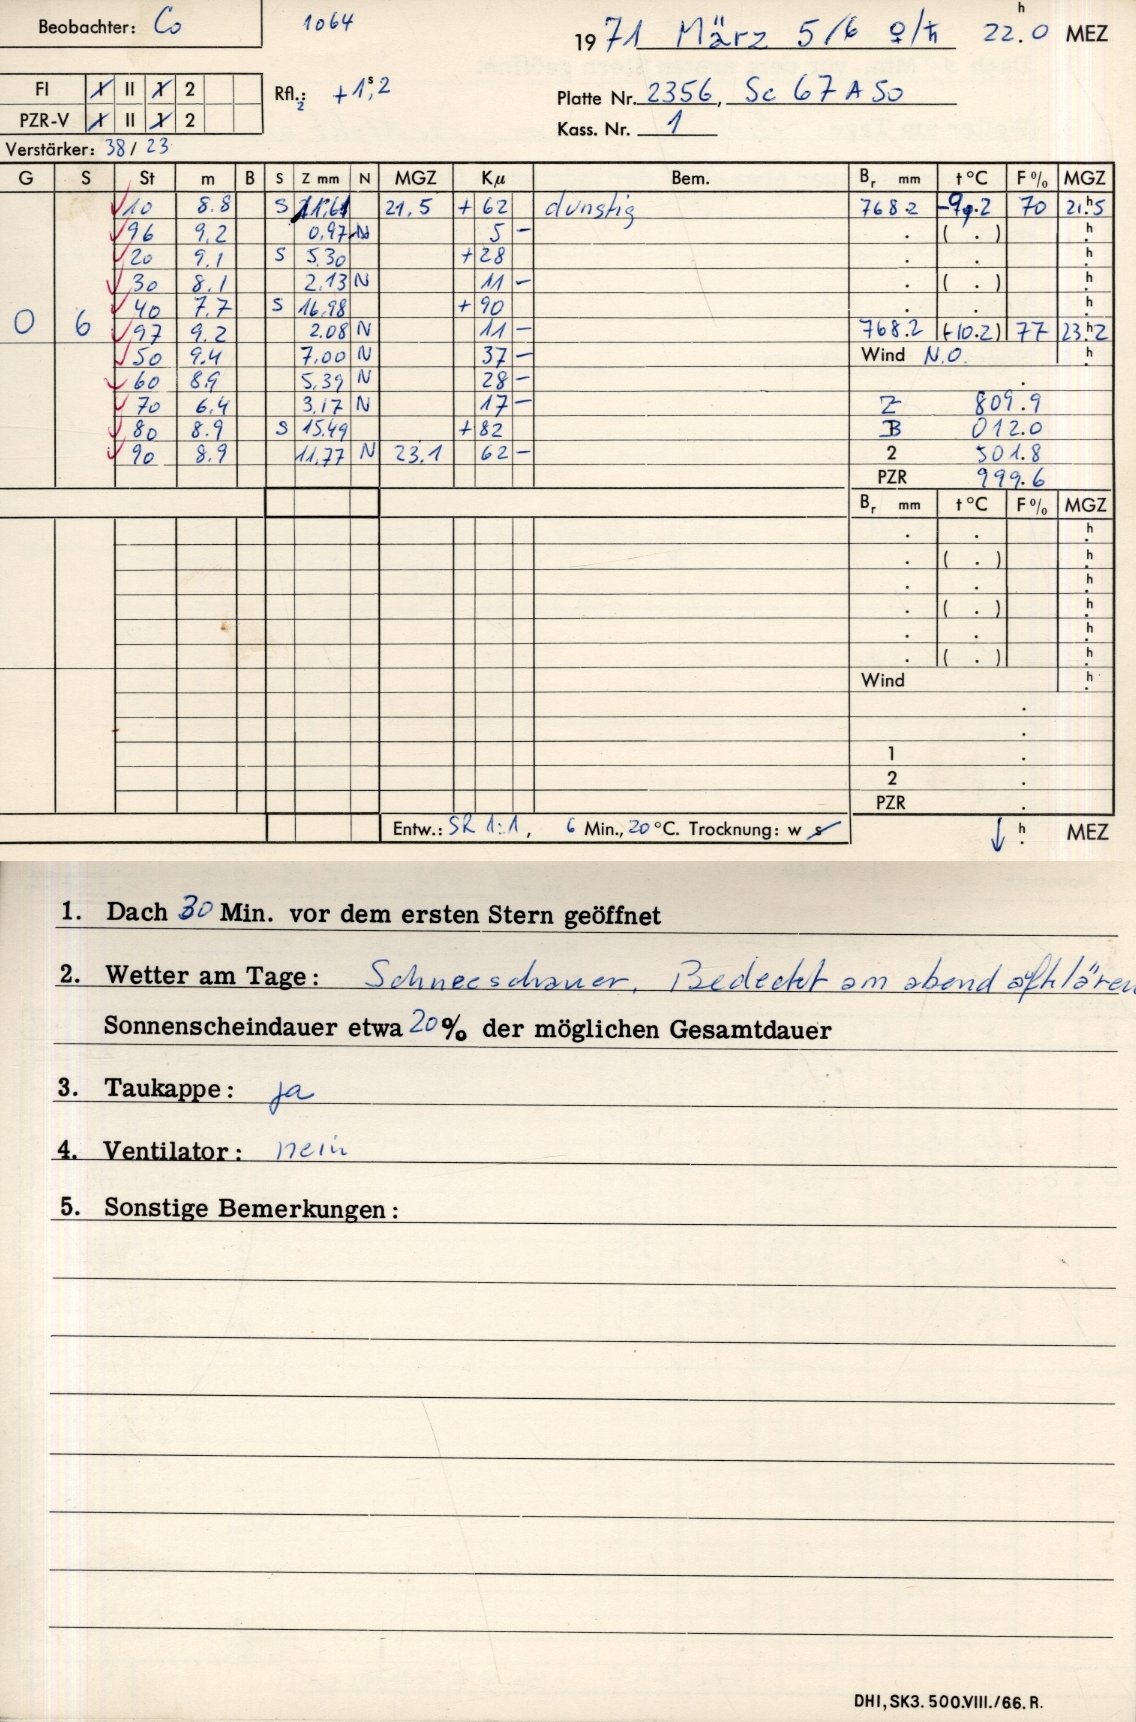 Beobachter: Co 1064 1971 März 5/6 ♀/♄ 22.0 h MEZ
FI I II 1 2 Rfl.: 2 +1,s2 Platte Nr. 2356, Sc 67 A 50
PZR-V I II 1 2 Kass. Nr. 1
Verstärker: 38 / 23
G S St m B S Z mm N MGZ Kμ Bem. Br mm t °C F % MGZ
10 8.8 S 11,61 21,5 + 62 dunstig 768.2 -9.2 70 21.h5
96 9,2 0,97 N 5 - . ( . ) h
20 9,1 S 5,30 +28 . . h
30 8,1 2,13 N 11 - . ( . ) h
40 7,7 S 16,98 +90 . . h
0 6 97 9,2 2.08 N 11 - 768.2 (-10.2) 77 23.h2
50 9.4 7,00 N 37 - Wind N.O. h
60 8,9 5,39 N 28 - .
70 6,4 3,17 N 17 - Z 809.9
80 8.9 S 15,49 +82 B 012.0
90 8.9 11,77 N 23.1 62 - 2 501.8
PZR 999.6
Br mm t °C F % MGZ
. . h
. ( . ) h
. . h
. ( . ) h
. . h
. ( . ) h
Wind h
.
.
1 .
2 .
PZR .
Entw.: SR 1:1, 6 Min., 20 °C. Trocknung: w s ↓ h MEZ
1. Dach 30 Min. vor dem ersten Stern geöffnet
2. Wetter am Tage: Schneeschauer, Bedeckt am abend
Sonnenscheindauer etwa 20 % der möglichen Gesamtdauer
3. Taukappe: ja
4. Ventilator: nein
5. Sonstige Bemerkungen:
DHI, SK3. 500.VIII./66. R.